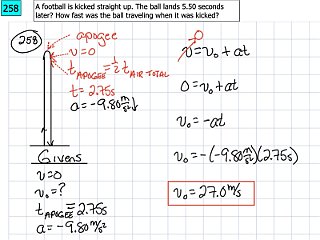 258
A football is kicked straight up. The ball lands 5.50 seconds
later? How fast was the ball traveling when it was kicked?
258
apogee
v=0
t APOGEE = 1/2 t AIR TOTAL
t = 2.75s
a = -9.80 m/s² ↓
Givens
v=0
v₀=?
t APOGEE = 2.75s
a = -9.80 m/s²
0
v = v₀ + at
0 = v₀ + at
v₀ = -at
v₀ = -(-9.80 m/s²)(2.75s)
v₀ = 27.0 m/s